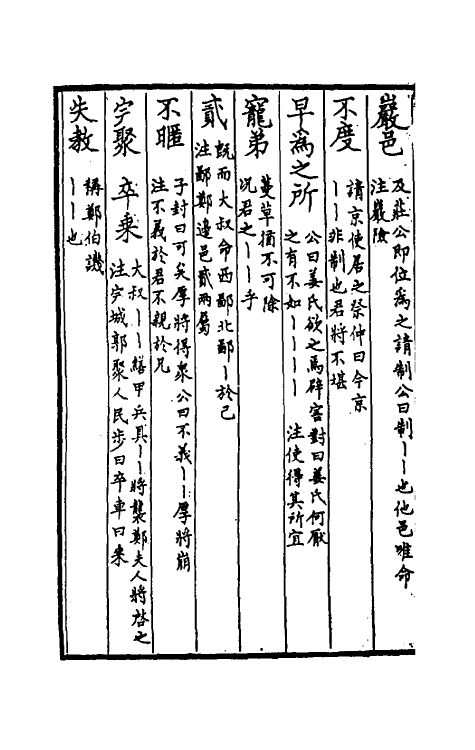 巖邑 及莊公即位為之請制公曰制〡〡也他邑唯命
注巖險
不度 請京使居之祭仲曰今京
〡〡非制也君將不堪
早為之所 公曰姜氏欲之焉辟害對曰姜氏何厭
之有不如〡〡〡〡 注使得其所宜
寵弟 蔓草猶不可除
况君之〡〡乎
貳 既而大叔命西鄙北鄙〡於己
注鄙鄭邊邑貳兩屬
不暱 子封曰可矣厚將得衆公曰不義〡〡厚將崩
注不義於君不親於兄
完聚 卒乘 大叔〡〡繕甲兵具〡〡將襲鄭夫人將啓之
注完城郭聚人民步曰卒車曰乘
失教 稱鄭伯譏
〡〡也